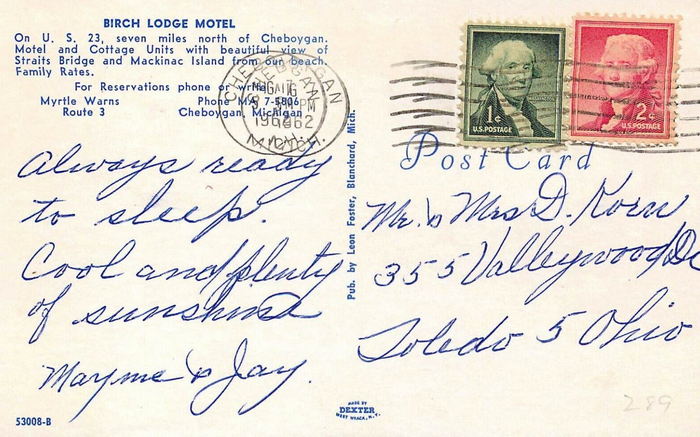 BIRCH LODGE MOTEL
On U. S. 23, seven miles north of Cheboygan.
Motel and Cottage Units with beautiful view of
Straits Bridge and Mackinac Island from our beach.
Family Rates.
For Reservations phone or write
Myrtle Warns Phone MA 7-5806
Route 3 Cheboygan, Michigan
CHEBOYGAN
AUG 16
PM
1962
MICH.
1¢
U.S. POSTAGE
2¢
U.S. POSTAGE
Post Card
Always ready
to sleep.
Cool and plenty
of sunshine
Mayme & Jay.
Pub. by Leon Foster, Blanchard, Mich.
Mr. & Mrs D. Korn
355 Valleywood Dr
Toledo 5 Ohio
MADE BY
DEXTER
WEST NYACK, N.Y.
53008-B
289